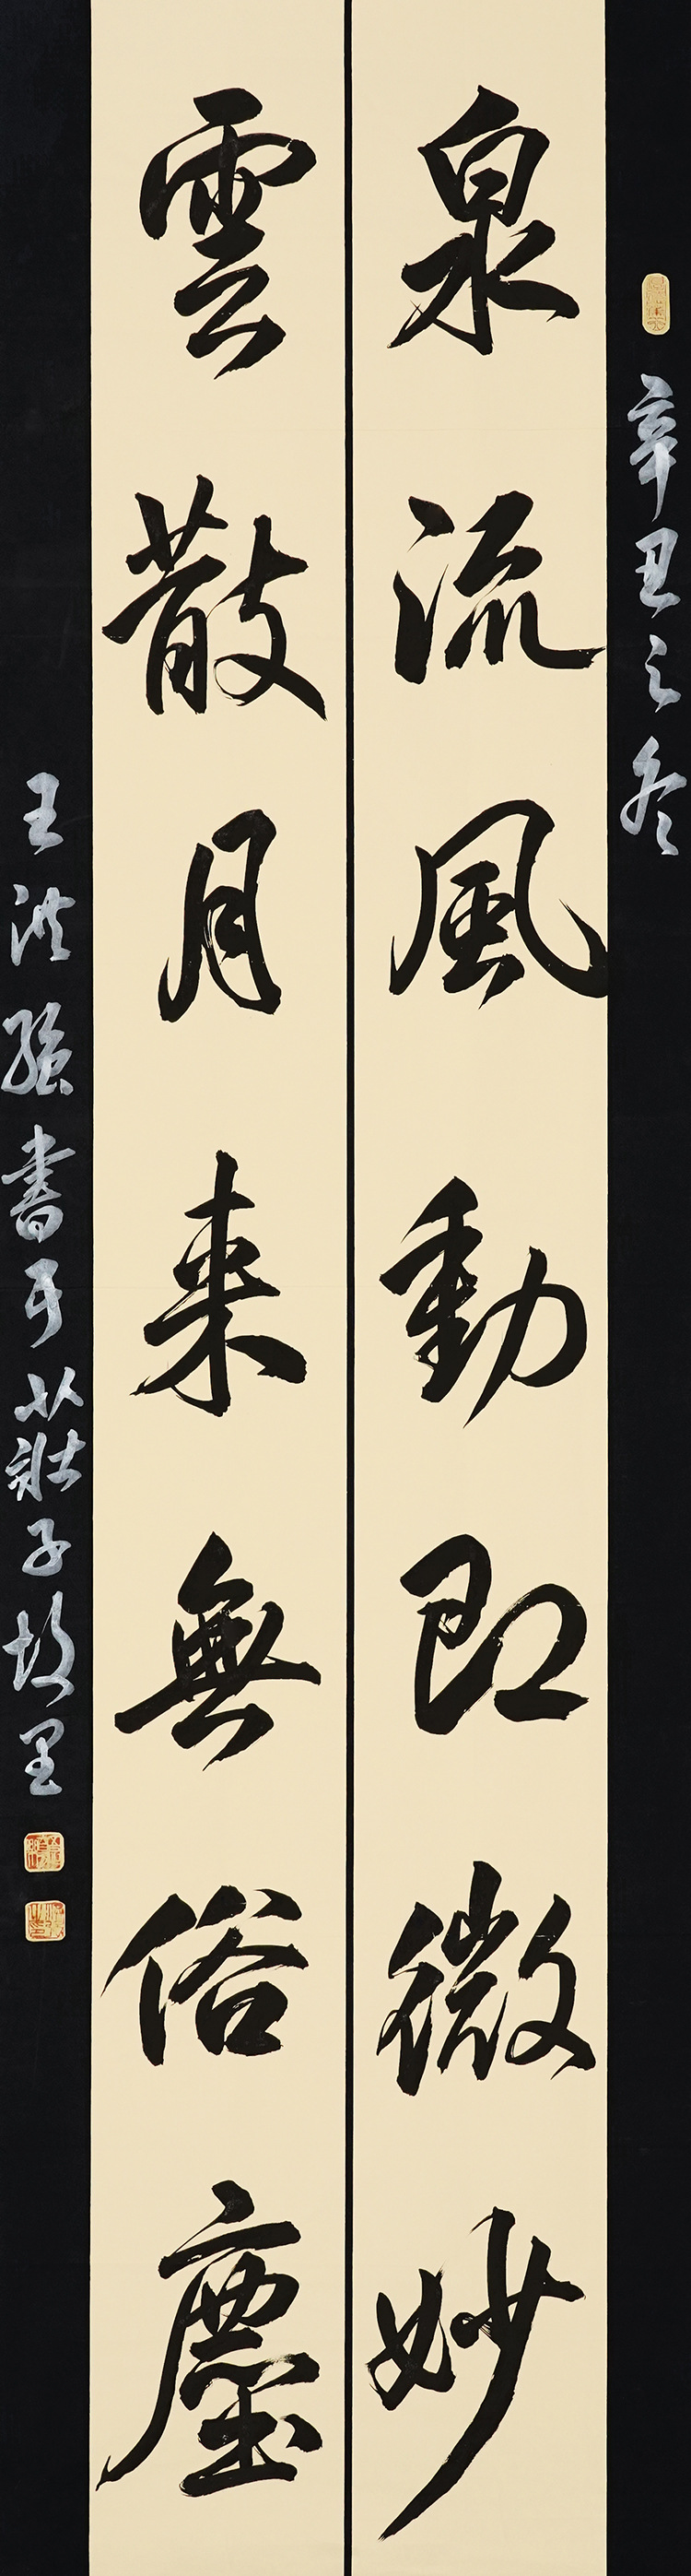 辛丑之冬
泉流風動即微妙
雲散月来無俗塵
王洪強書于莊子故里